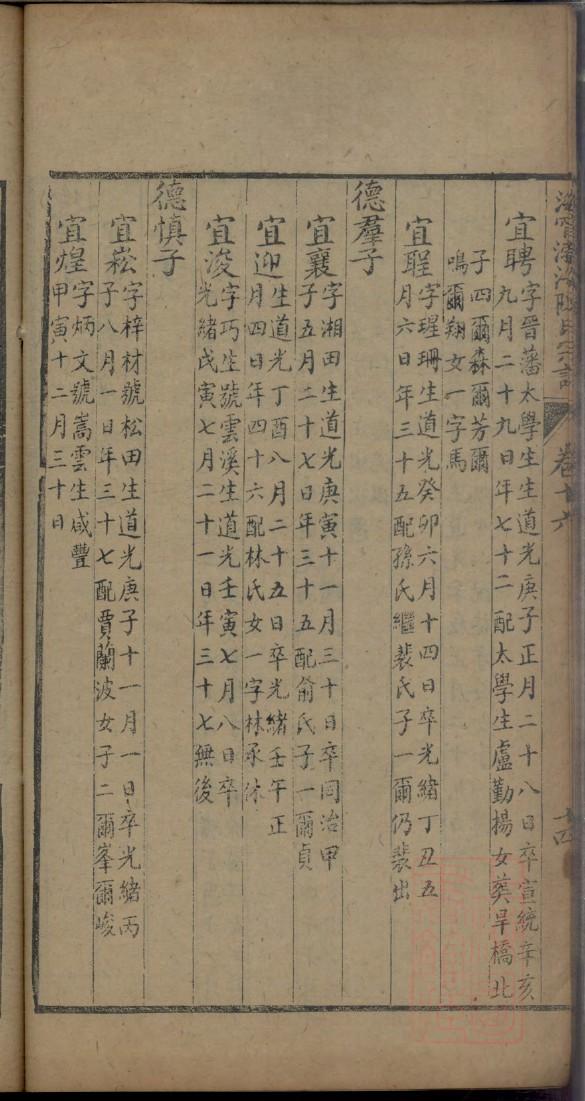 海寧渤海陳氏宗譜 卷十六 十四
宜聘字晉藩太學生生道光庚子正月二十八日卒宣統辛亥
九月二十九日年七十二配太學生盧勤揚女葬旱橋北
子四爾森爾芳爾
鳴爾翔女一字馬
宜聖字瑆珊生道光癸卯六月十四日卒光緒丁丑五
月六日年三十五配孫氏繼裴氏子一爾仍裴出
德羣子
宜襄字湘田生道光庚寅十一月三十日卒同治甲
子五月二十七日年三十五配俞氏子一爾貞
宜迎生道光丁酉八月二十五日卒光緒壬午正
月四日年四十六配林氏女一字林承休
宜浚字巧生號雲溪生道光壬寅七月八日卒
光緒戊寅七月二十一日年三十七無後
德慎子
宜崧字梓材號松田生道光庚子十一月一日卒光緒丙
子八月一日年三十七配賈蘭波女子二爾峯爾峻
宜煌字炳文號嵩雲生咸豐
甲寅十二月三十日